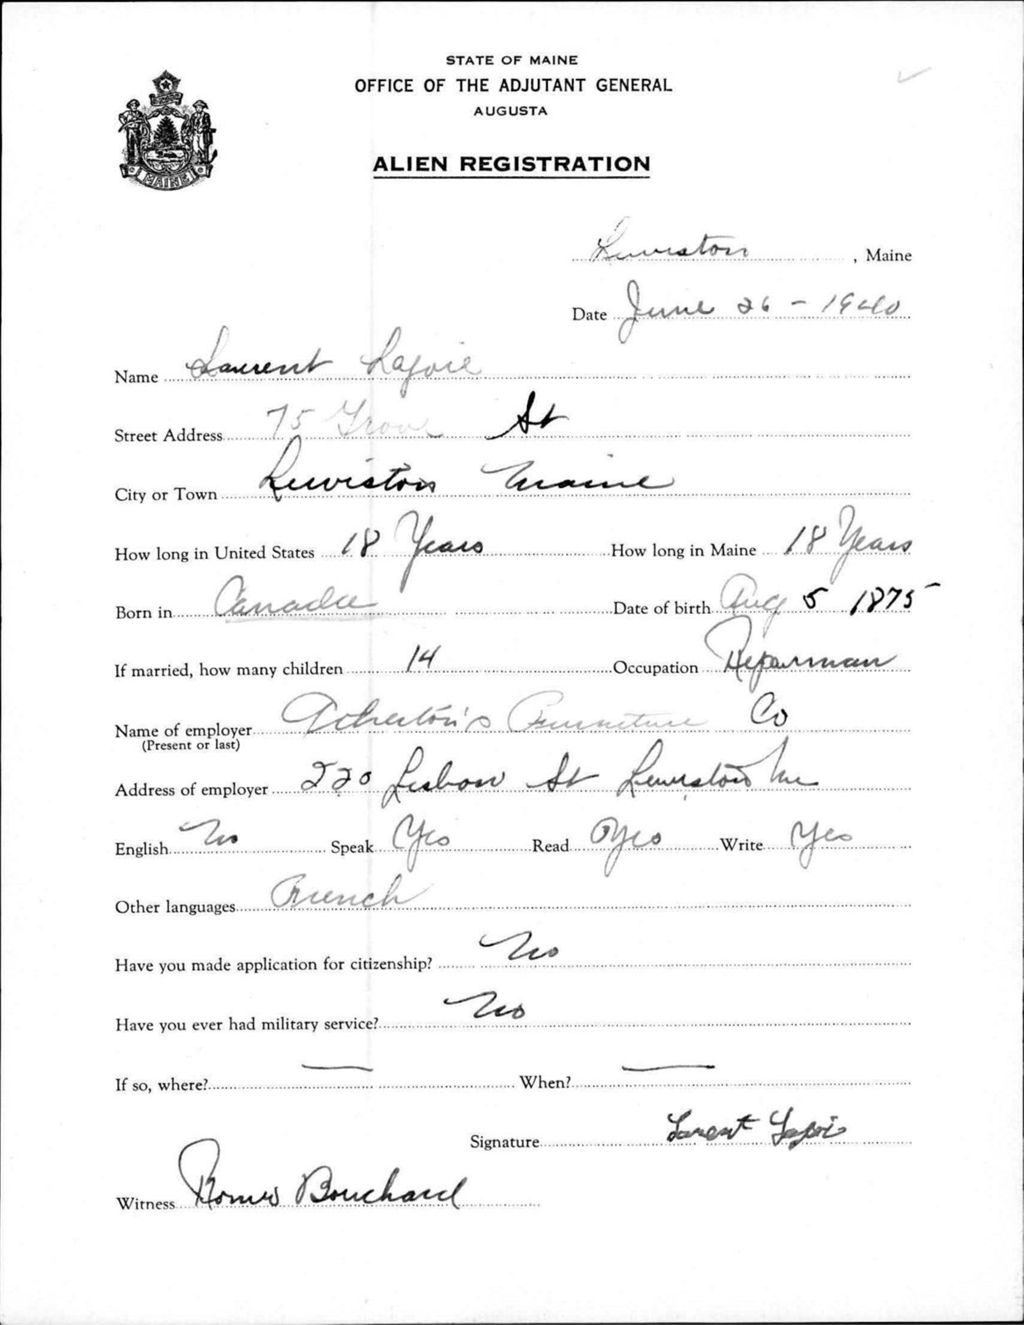 STATE OF MAINE
OFFICE OF THE ADJUTANT GENERAL
AUGUSTA
MAINE
ALIEN REGISTRATION
Lewiston, Maine
Date June 26 - 1940
Name Laurent Lajoie
Street Address 75 Grove St
City or Town Lewiston Maine
How long in United States 18 Years How long in Maine 18 Years
Born in Canada Date of birth Aug 5 1875
If married, how many children 14 Occupation Reparman
Name of employer Atherton's Furniture Co
(Present or last)
Address of employer 220 Lisbon St Lewiston Me
English No Speak Yes Read Yes Write Yes
Other languages French
Have you made application for citizenship? No
Have you ever had military service? No
If so, where? — When? —
Signature Lorent Lajoi
Witness Bouchard